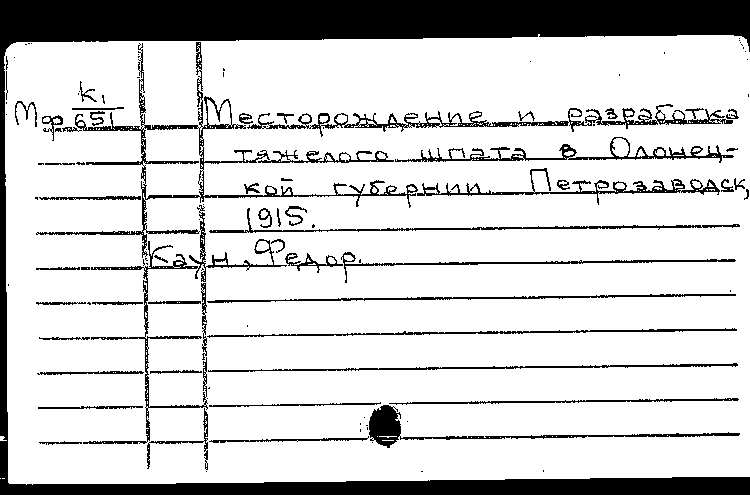 Мф К1/651 Месторождение и разработка
тяжелого шпата в Олонец-
кой губернии. Петрозаводск,
1915.
Каун, Федор.